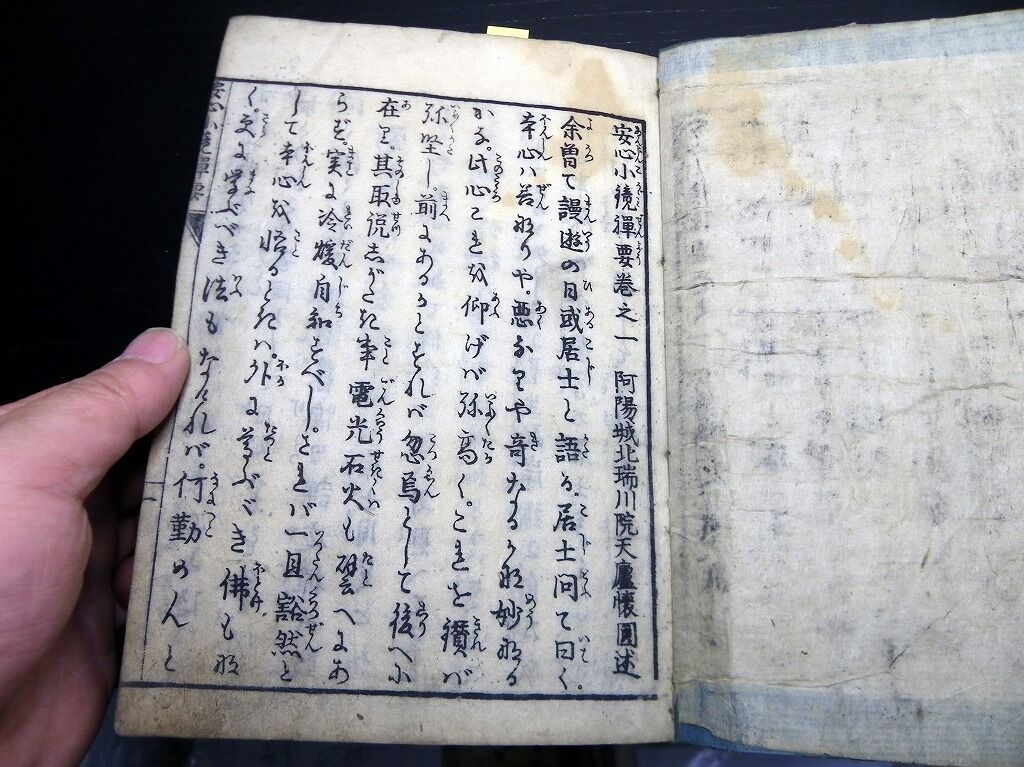 安心小鏡禪要巻之一 阿陽城北瑞川院天廬懷圓述
余曽て謾遊の日或居士と語る。居士問て曰く。
本心ハ善なりや。悪なりや奇なるか妙なる
かな。此心これを仰げバ弥高く。これを鑽バ
弥堅し。前にあるかとすれバ忽焉として後へに
在り。其取説しがたき事電光石火も譬へにあ
らず。実に冷煖自知すべし。されバ一旦豁然と
して本心を悟るときハ。外に尊ぶべき佛もな
く。更に学べき法もなけれバ。行勤めんと
安心小鏡禪要